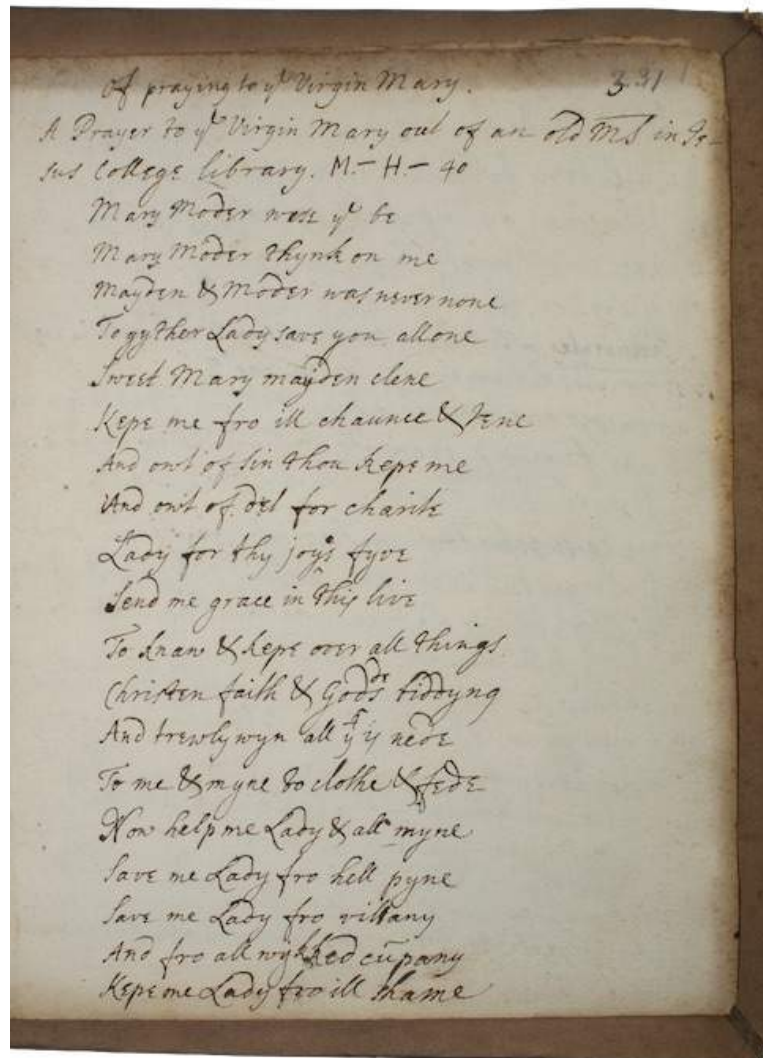 of praying to yᵉ Virgin Mary. 331
A Prayer to yᵉ Virgin Mary out of an old MS in Je-
sus College library. M.– H.– 40
Mary Moder wese yᵘ be
Mary Moder thynk on me
Mayden & Moder was never none
Togyther Lady save you allone
Sweet Mary mayden clene
Kepe me fro ill chaunce & tene
And owt of sin thou kepe me
And owt of det for charite
Lady for thy joys fyve
Send me grace in this live
To knaw & kepe over all things
Christen faith & Godds biddyng
And trewly wyn all yᵗ is nede
To me & myne to clothe & fede
Now help me Lady & all myne
Save me Lady fro hell pyne
Save me Lady fro villany
And fro all wykked cūpany
Kepe me Lady fro ill shame